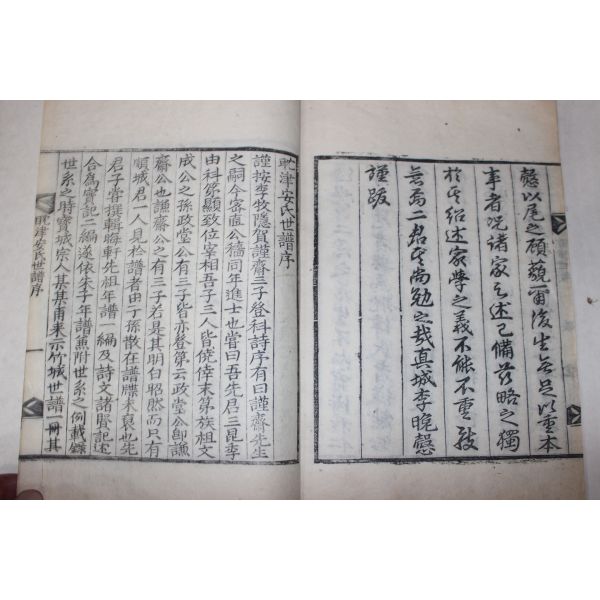 懇以尾之顧藐爾後生無足以重本
事者況諸家之述已備玆略之獨
於其紹述家學之義不能不重致
意焉二君其尚勉之哉真城李晚慤
謹跋
耽津安氏世譜序
謹按李牧隱賀謹齋三子登科詩序有曰謹齋先生
之嗣今密直公穡同年進士也嘗曰吾先君三昆季
由科第顯致位宰相吾子三人皆僥倖末第族祖文
成公之孫政堂公有三子皆亦登第云政堂公卽謙
齋公也謙齋公之有三子若是其明白昭然而只有
順城君一人見於譜者由子孫散在譜牒未裒也先
君子嘗撰輯晦軒先祖年譜一編及詩文諸賢記述
合為實記二編遂依朱子年譜兼附世系之例載錄
世系之時寶城宗人某某甫來示竹城世譜一冊其
耽津安氏世譜序